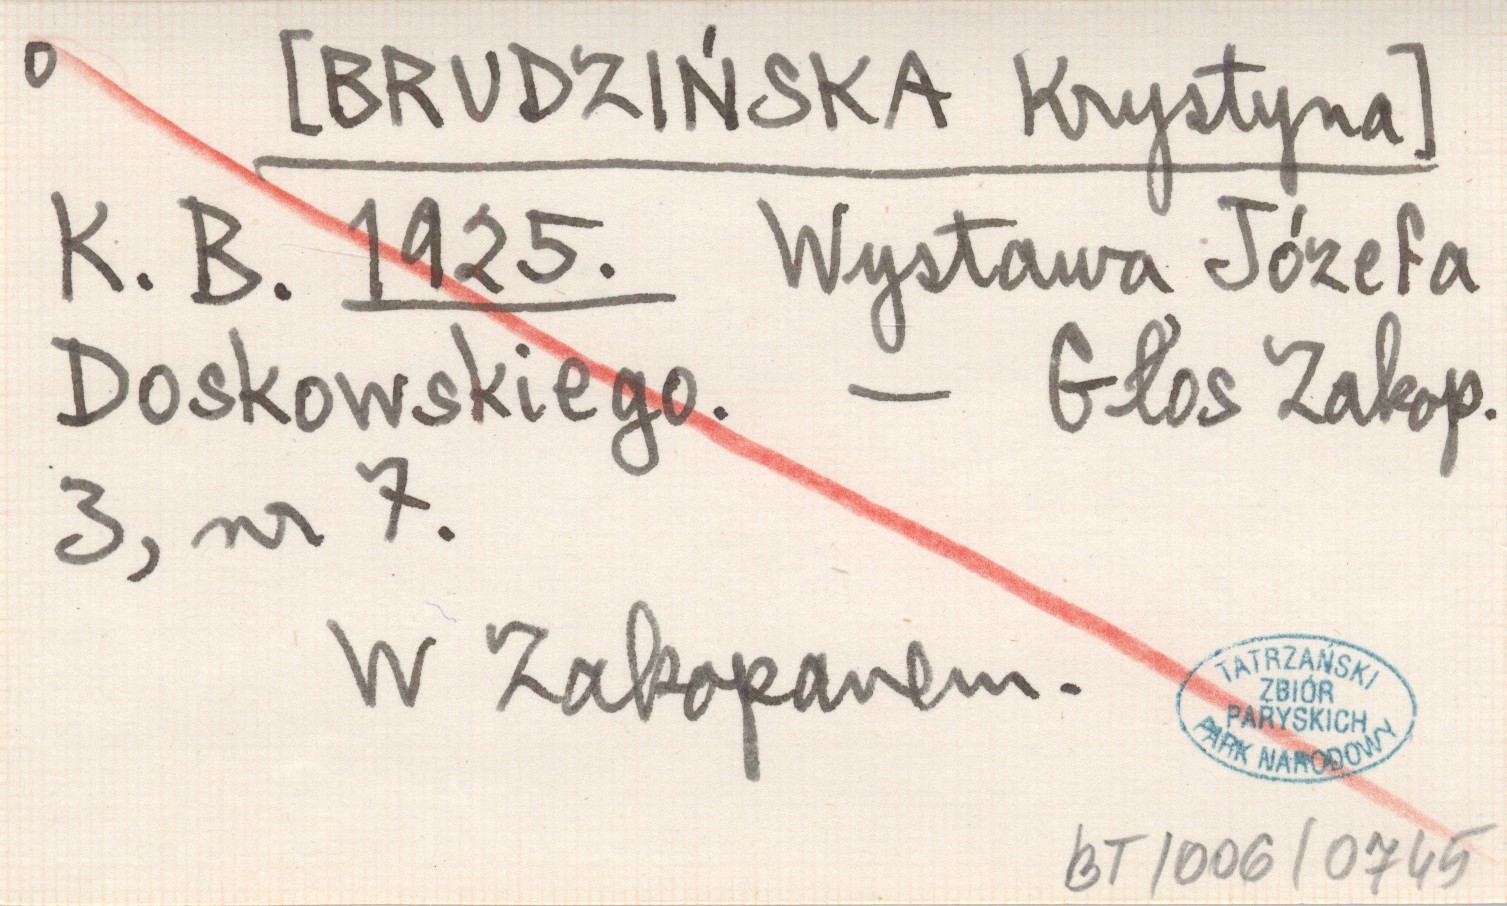 o [BRUDZIŃSKA Krystyna]
K. B. 1925. Wystawa Józefa
Doskowskiego. — Głos Zakop.
3, nr 7.
W Zakopanem.
TATRZAŃSKI
ZBIÓR
PARYSKICH
PARK NARODOWY
BT/006/0745